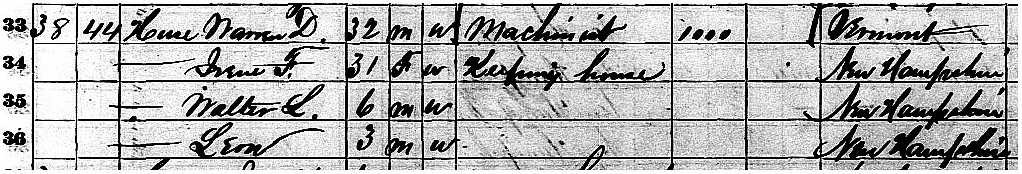 33 38 44 House Warren D. 32 m w Machinist 1000 Vermont
34 — Irene F. 31 F w Keeping house New Hampshire
35 — Walter L. 6 m w New Hampshire
36 — Leon 3 m w New Hampshire